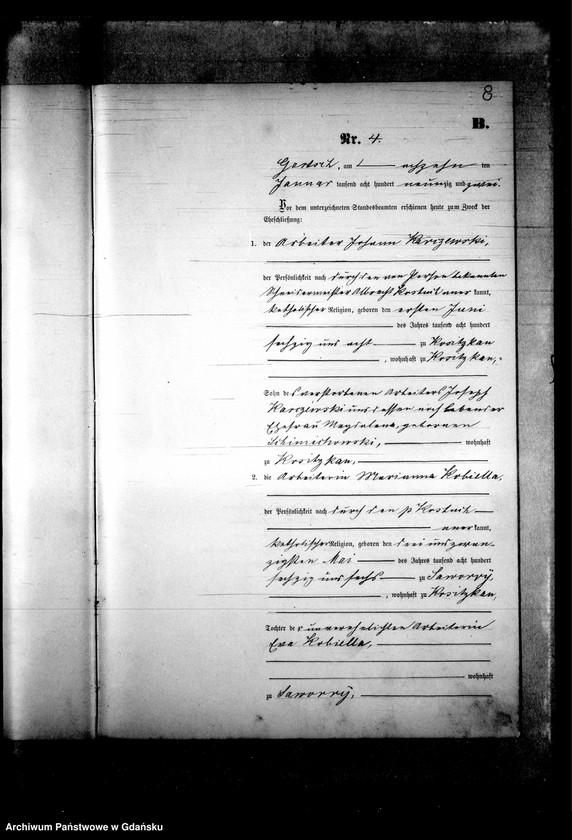 8
B.
Nr. 4.
am achzehn ten
Januar tausend acht hundert neunzig und zwei.
Vor dem unterzeichneten Standesbeamten erschienen heute zum Zweck der
Eheschließung:
1. der Arbeiter Johann Karszewski,
der Persönlichkeit nach durch den von Person bekannten
Schneidermeister Albrecht aner kannt,
katholischer Religion, geboren den ersten Juni
des Jahres tausend acht hundert
sechzig und acht zu Kositzkau
, wohnhaft zu Kositzkau,
Sohn des verstorbenen Arbeiters Joseph
Karszewski und dessen noch lebender
Ehefrau Magdalena, geborenen
wohnhaft
zu Kositzkau,
2. die Arbeiterin Marianna Kobiella,
der Persönlichkeit nach durch den p
aner kannt,
katholischer Religion, geboren den drei und zwan-
zigsten Mai des Jahres tausend acht hundert
sechzig und sechs zu Saworry,
, wohnhaft zu Kositzkau,
Tochter der unverehelichten Arbeiterin
Eva Kobiella,
wohnhaft
zu Saworry,
Archiwum Państwowe w Gdańsku